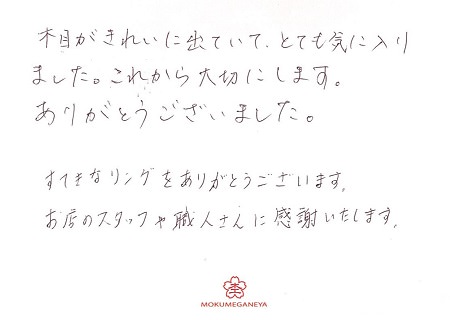 木目がきれいに出ていて、とても気に入り
ました。これから大切にします。
ありがとうございました。
すてきなリングをありがとうございます。
お店のスタッフや職人さんに感謝いたします。
MOKUMEGANEYA